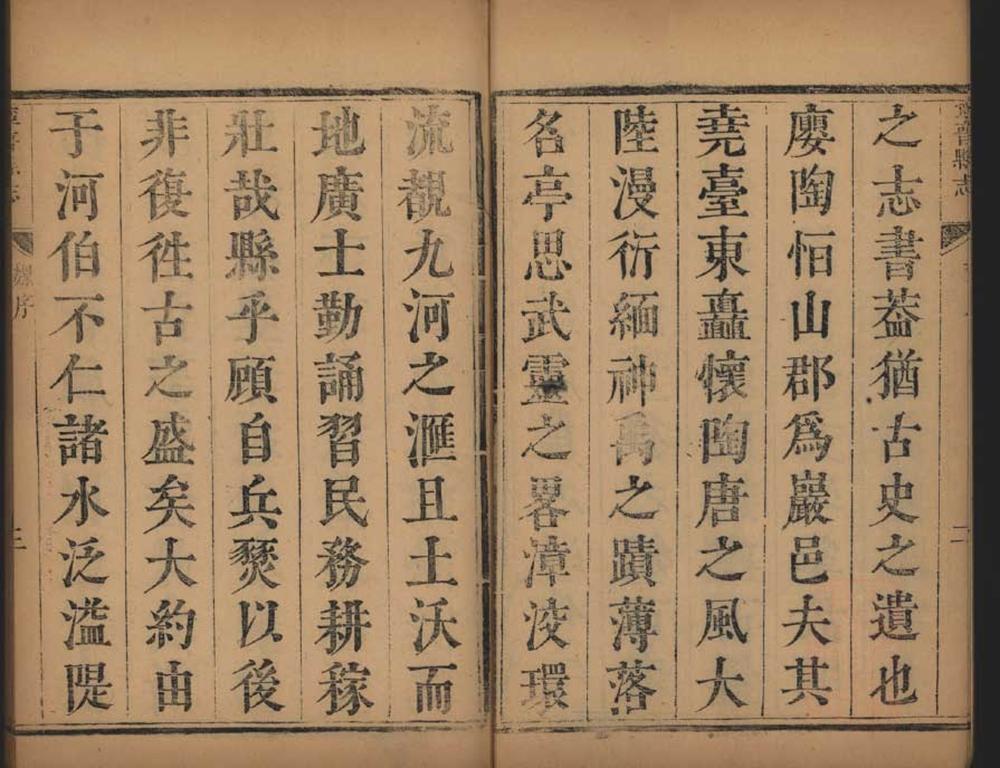 之志書葢猶古史之遺也
廮陶恒山郡爲巖邑夫其
堯臺東矗懷陶唐之風大
陸漫衍緬神禹之蹟薄落
名亭思武靈之畧漳洨環
流覩九河之滙且土沃而
地廣士勤誦習民務耕稼
壯哉縣乎顧自兵燹以後
非復徃古之盛矣大約由
于河伯不仁諸水泛溢隄
縣志
二
志
序
三